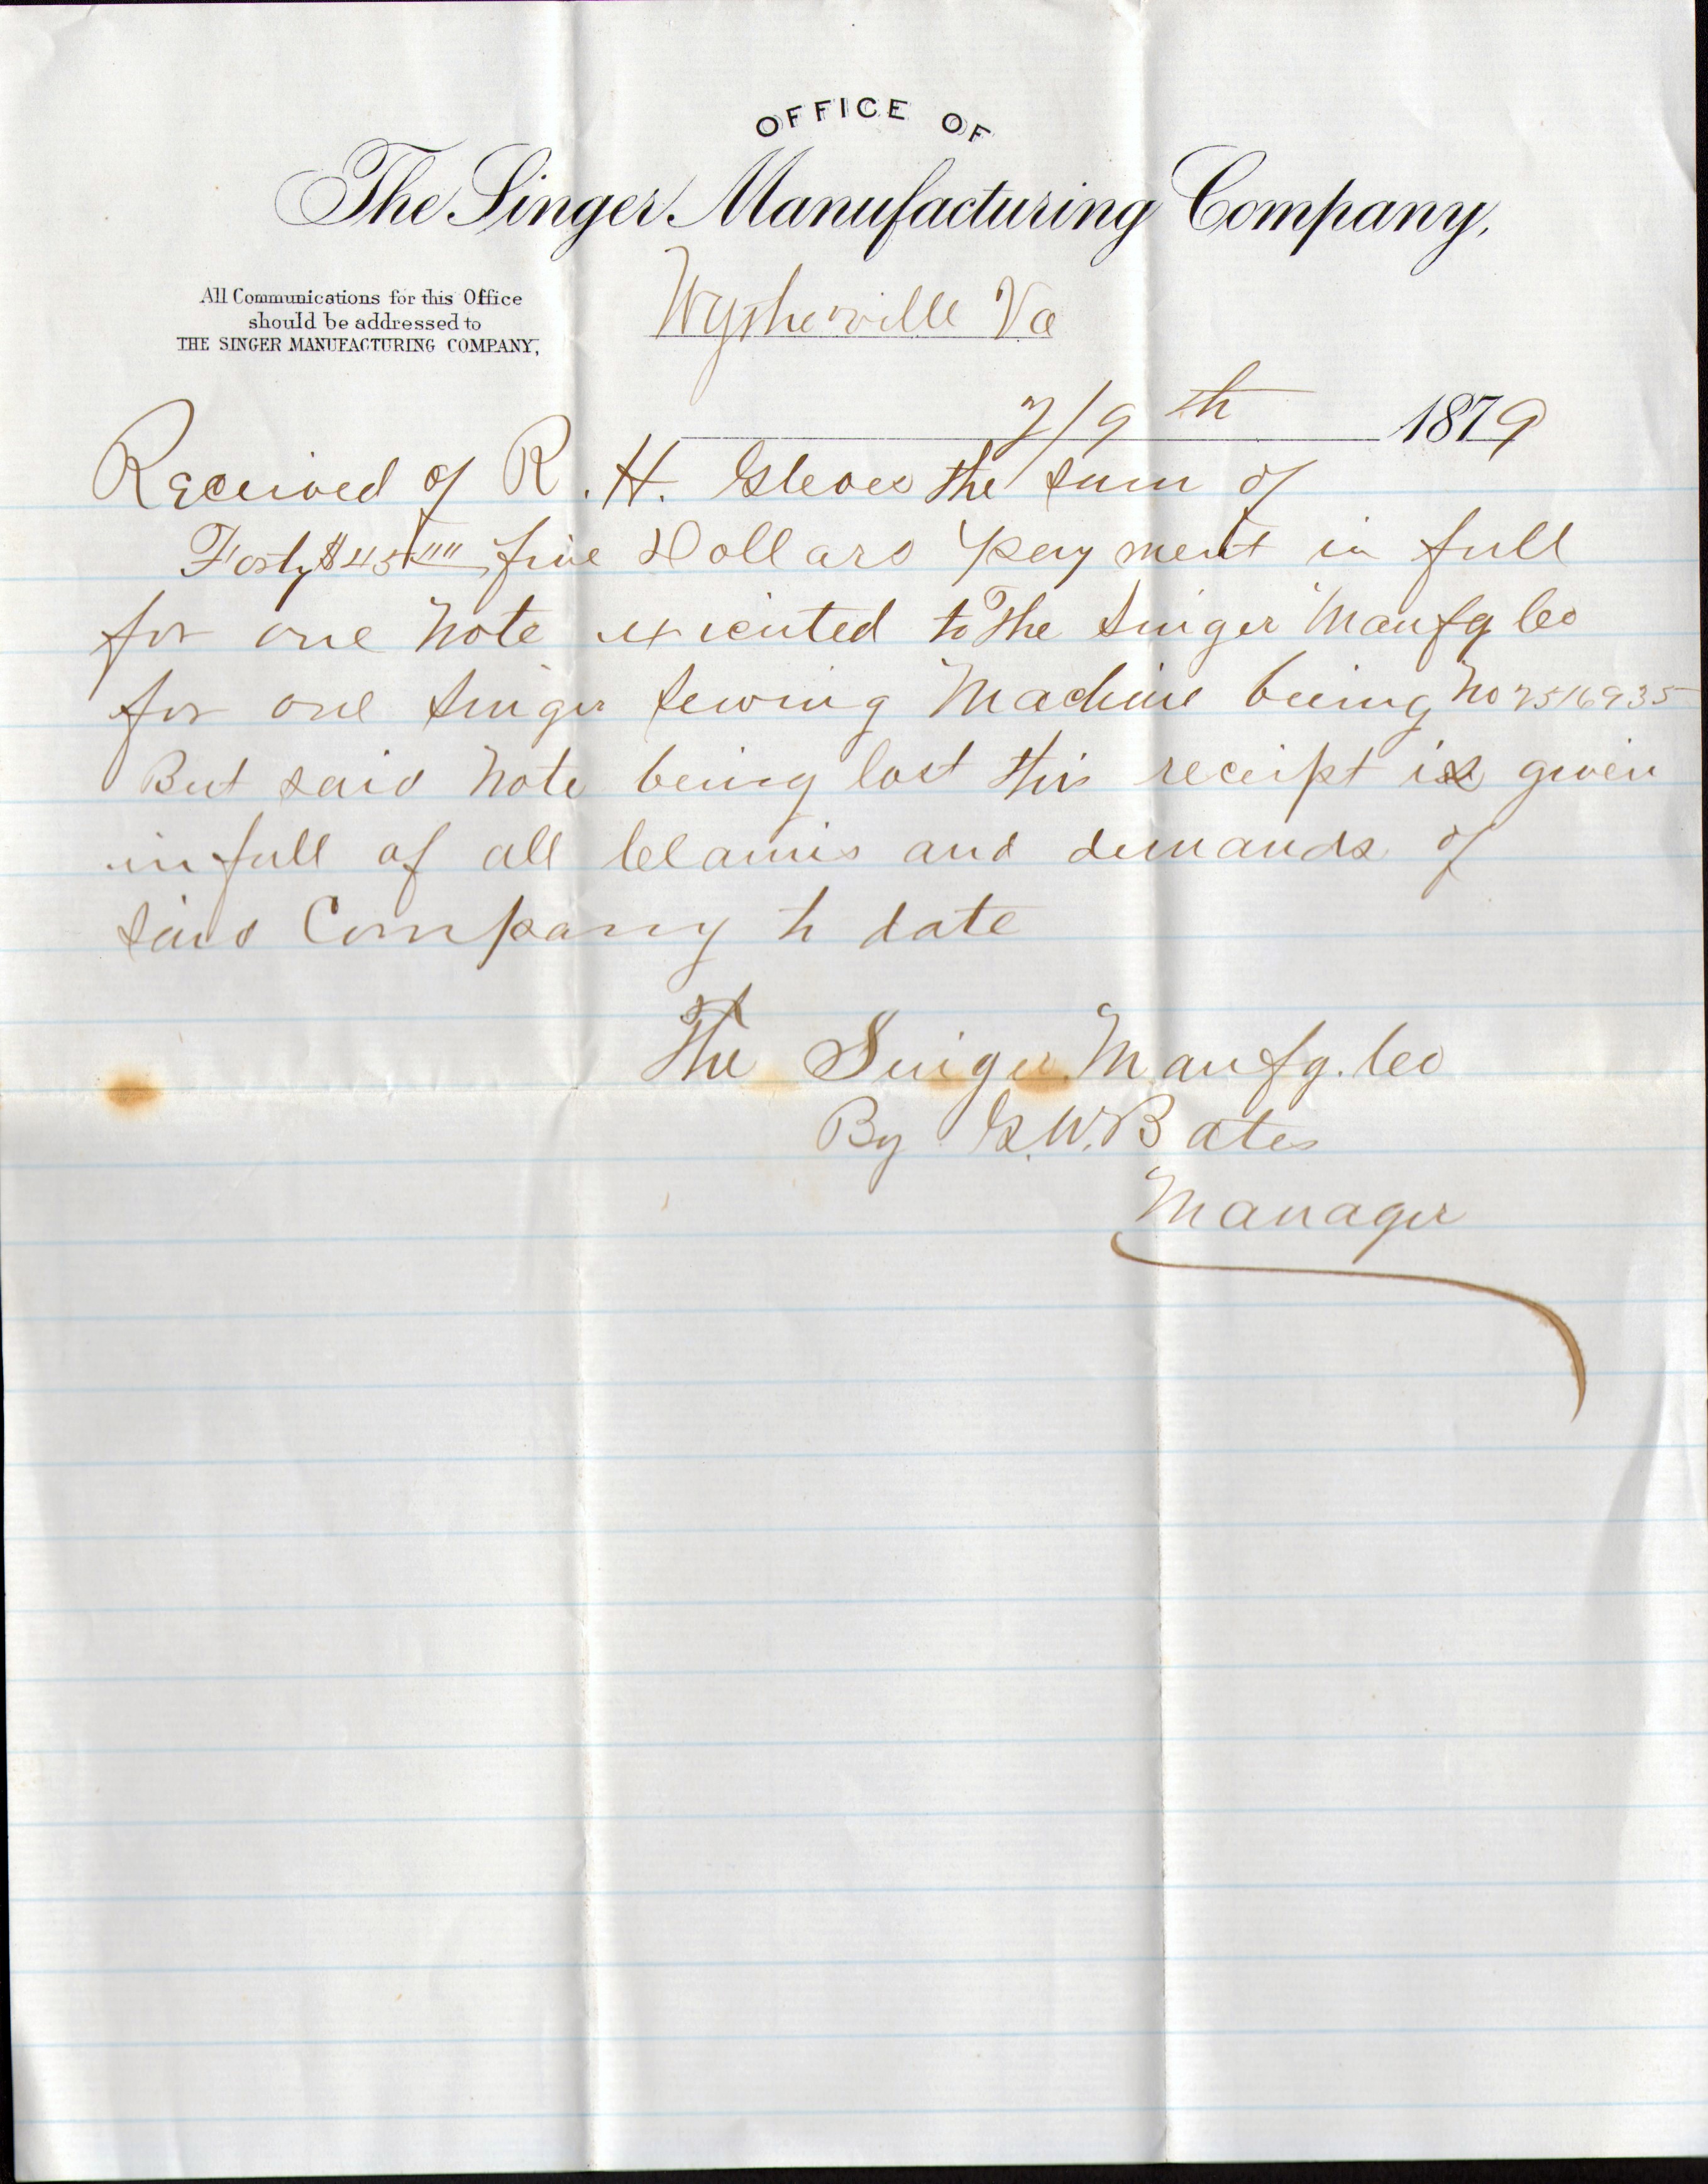 OFFICE OF
The Singer Manufacturing Company,
All Communications for this Office
should be addressed to
THE SINGER MANUFACTURING COMPANY,
Wytheville Va
7/9th 1879
Received of R. H. Gleaves the sum of
Forty $45"" five Dollars payment in full
for one Note executed to The Singer Manfg Co
for one Singer Sewing Machine being No
But said Note being lost this receipt is given
in full of all Claims and demands of
said Company to date
The Singer Manfg. Co
By G.W. Bates
Manager